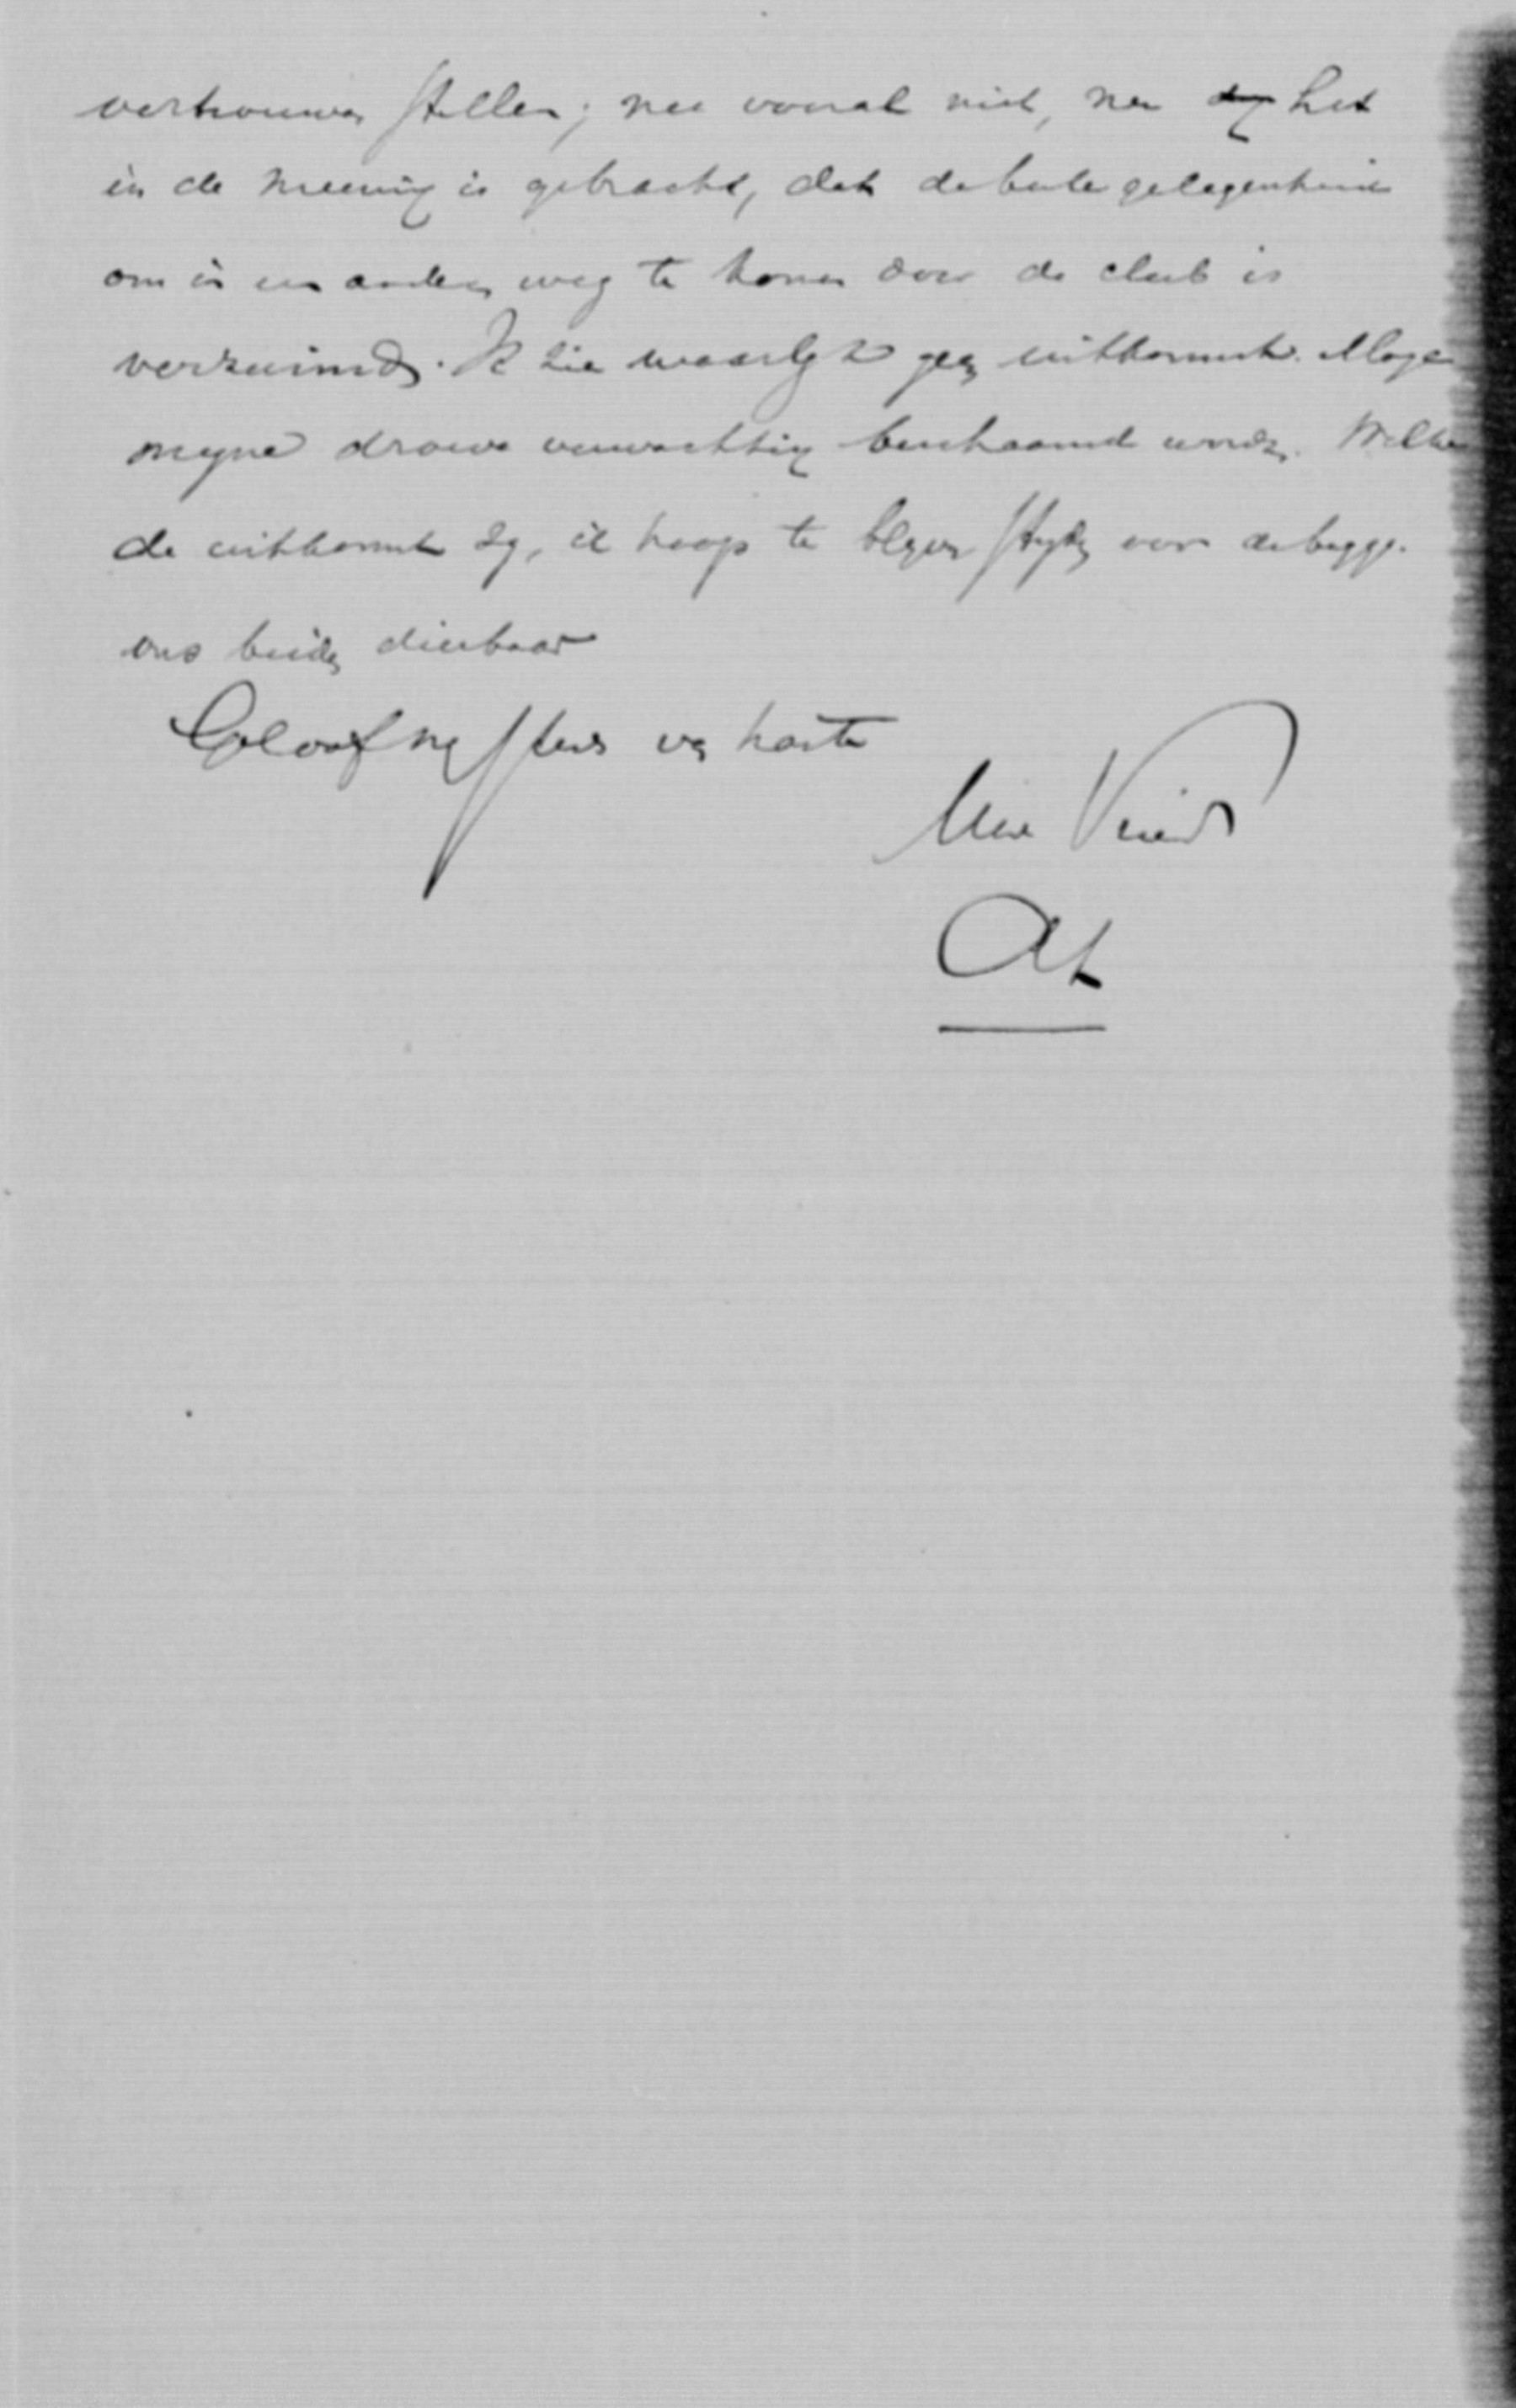 vertrouwen stellen; nee vooral niet, nu het
in de meening is gebracht, dat de beste gelegenheid
om in een anderen weg te komen door de club is
verzuimd. Ik zie waarlijk geen uitkomst. Moge
mijne droeve verwachting beschaamd worden. Welke
de uitkomst zij, ik hoop te blijven strijden voor de
ons beiden dierbaar
Geloof mij steeds van harte
Uw Vriend